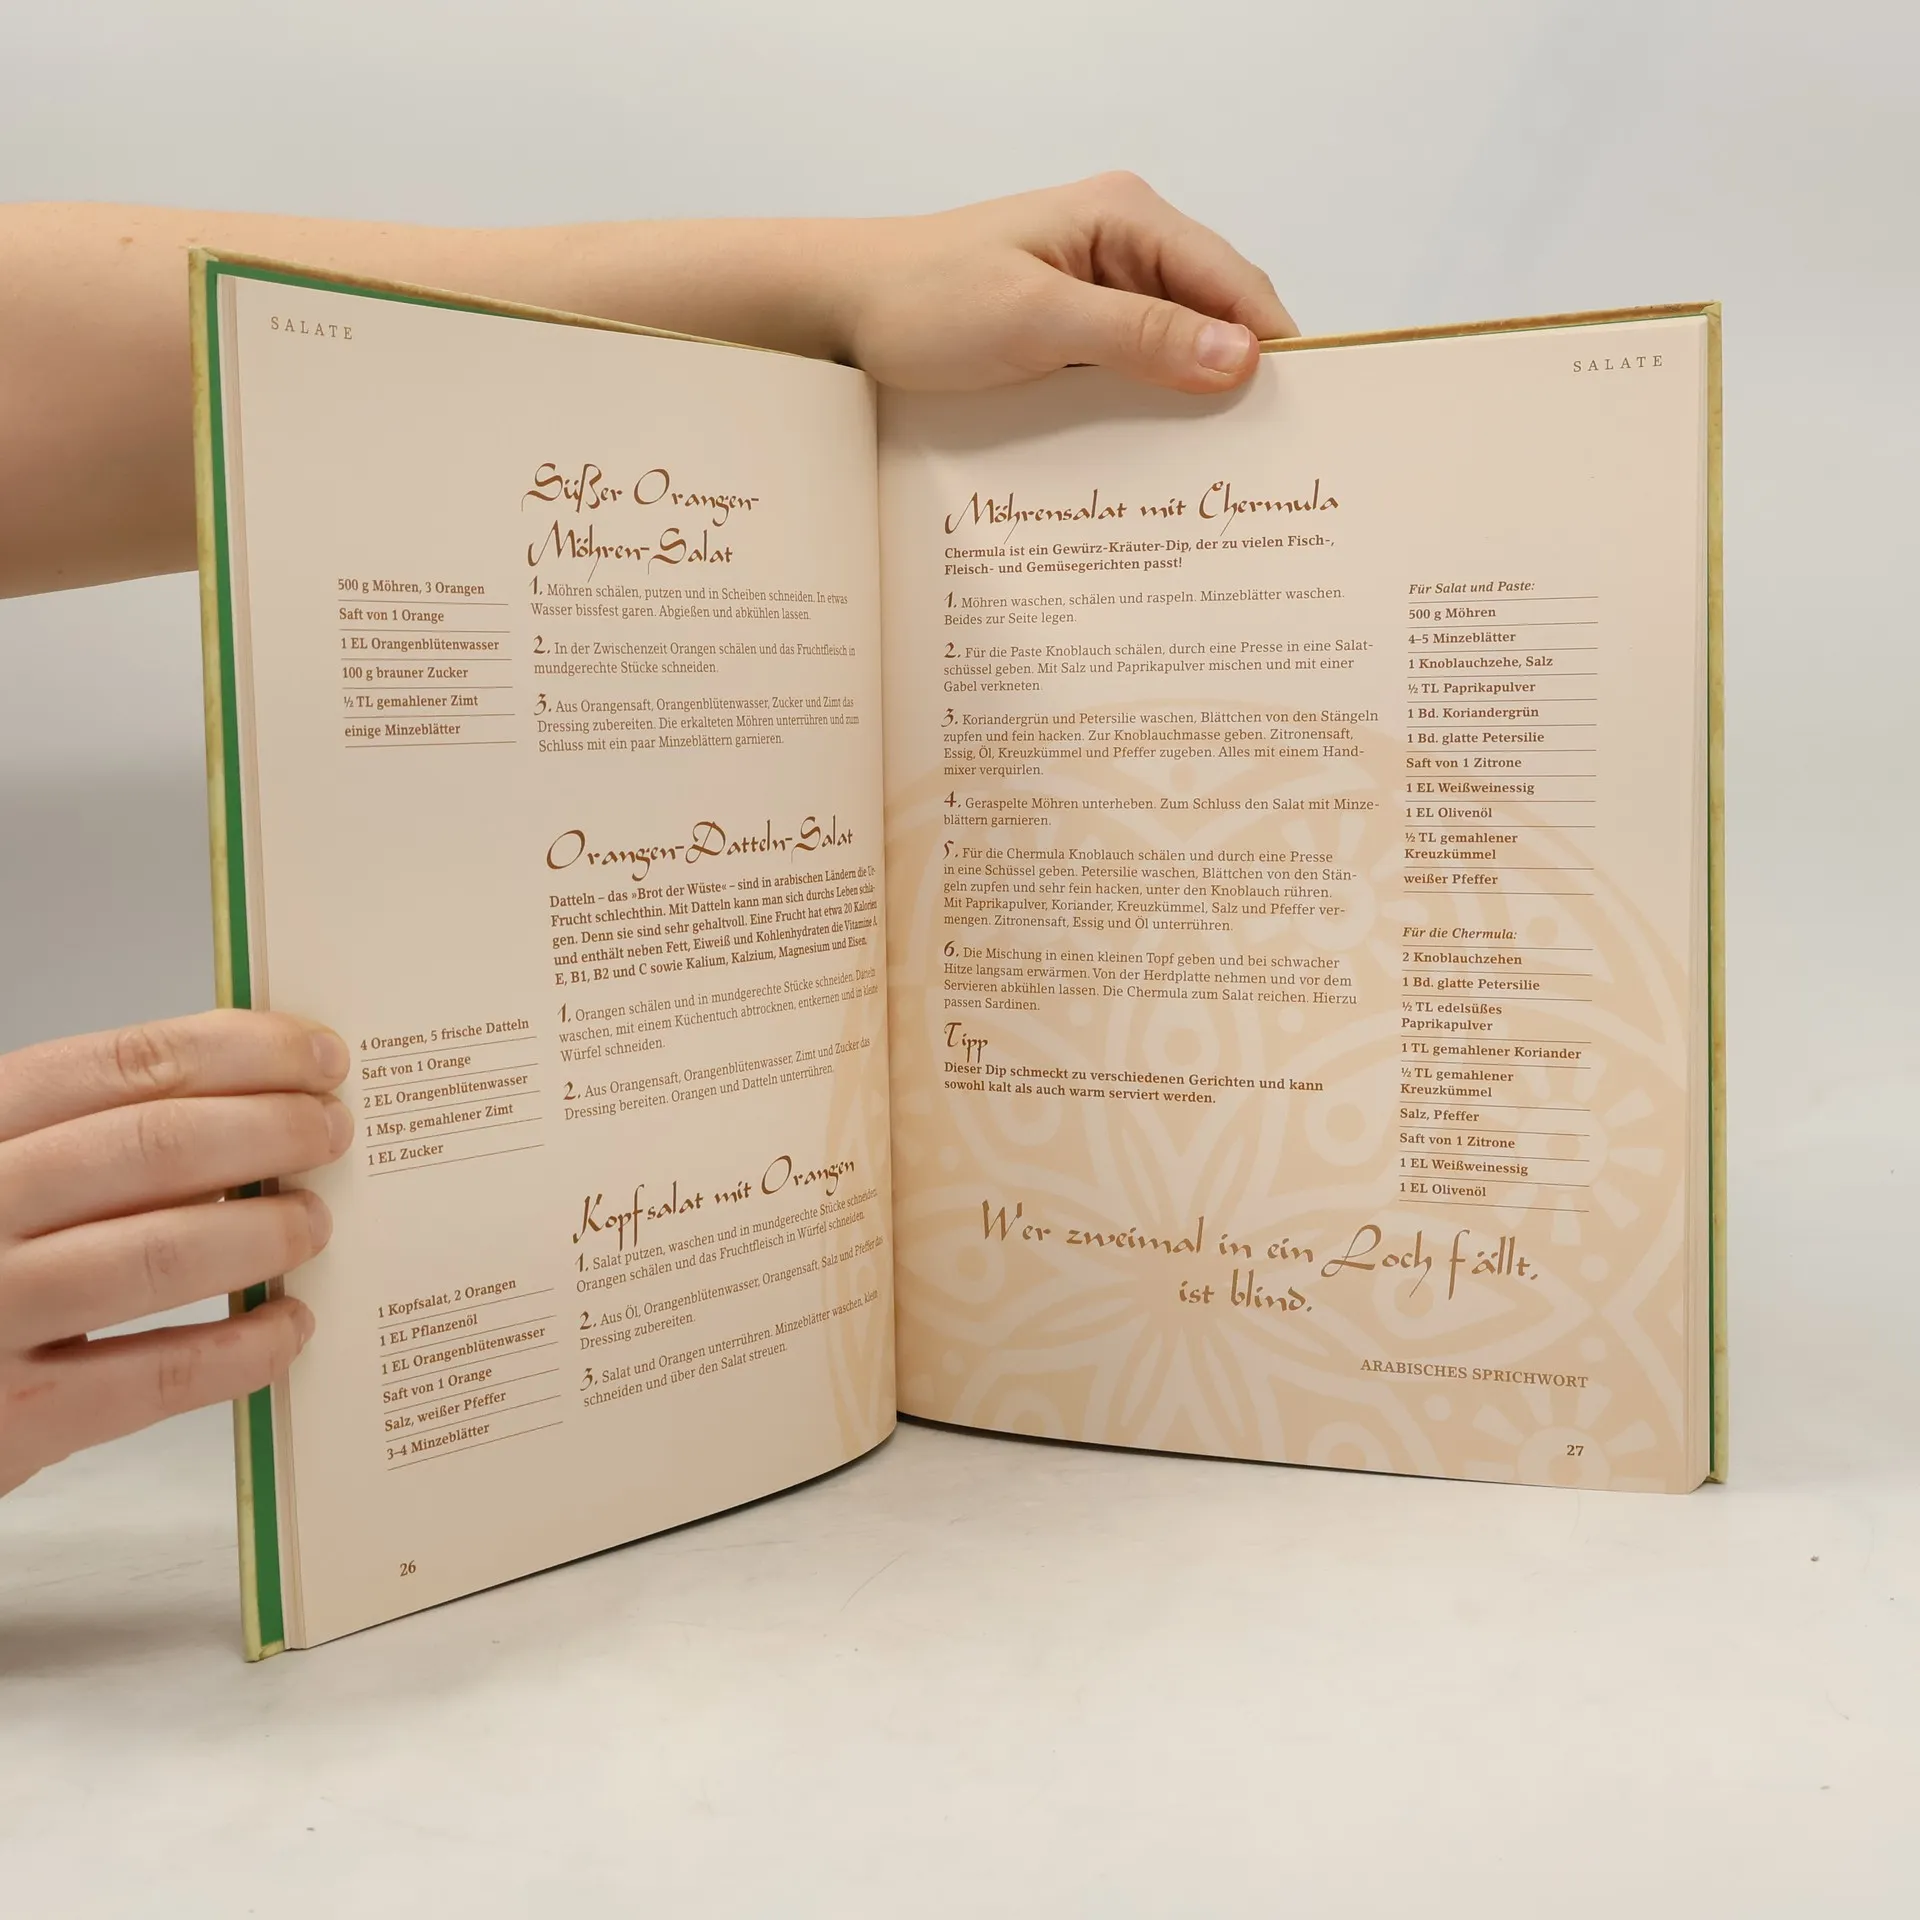 SALATE
Süßer Orangen-
Möhren-Salat
500 g Möhren, 3 Orangen
Saft von 1 Orange
1 EL Orangenblütenwasser
100 g brauner Zucker
½ TL gemahlener Zimt
einige Minzeblätter
1. Möhren schälen, putzen und in Scheiben schneiden. In etwas
Wasser bissfest garen. Abgießen und abkühlen lassen.
2. In der Zwischenzeit Orangen schälen und das Fruchtfleisch in
mundgerechte Stücke schneiden.
3. Aus Orangensaft, Orangenblütenwasser, Zucker und Zimt das
Dressing zubereiten. Die erkalteten Möhren unterrühren und zum
Schluss mit ein paar Minzeblättern garnieren.
Orangen-Datteln-Salat
Datteln – das »Brot der Wüste« – sind in arabischen Ländern die
Frucht schlechthin. Mit Datteln kann man sich durchs Leben schla-
gen. Denn sie sind sehr gehaltvoll. Eine Frucht hat etwa 20 Kalorien
und enthält neben Fett, Eiweiß und Kohlenhydraten die Vitamine A,
E, B1, B2 und C sowie Kalium, Kalzium, Magnesium und Eisen.
4 Orangen, 5 frische Datteln
Saft von 1 Orange
2 EL Orangenblütenwasser
1 Msp. gemahlener Zimt
1 EL Zucker
1. Orangen schälen und in mundgerechte Stücke schneiden. Datteln
waschen, mit einem Küchentuch abtrocknen, entkernen und in kleine
Würfel schneiden.
2. Aus Orangensaft, Orangenblütenwasser, Zimt und Zucker das
Dressing bereiten. Orangen und Datteln unterrühren.
Kopfsalat mit Orangen
1 Kopfsalat, 2 Orangen
1 EL Pflanzenöl
1 EL Orangenblütenwasser
Saft von 1 Orange
Salz, weißer Pfeffer
3–4 Minzeblätter
1. Salat putzen, waschen und in mundgerechte Stücke schneiden.
Orangen schälen und das Fruchtfleisch in Würfel schneiden.
2. Aus Öl, Orangenblütenwasser, Orangensaft, Salz und Pfeffer das
Dressing zubereiten.
3. Salat und Orangen unterrühren. Minzeblätter waschen, klein
schneiden und über den Salat streuen.
26
SALATE
Möhrensalat mit Chermula
Chermula ist ein Gewürz-Kräuter-Dip, der zu vielen Fisch-,
Fleisch- und Gemüsegerichten passt!
1. Möhren waschen, schälen und raspeln. Minzeblätter waschen.
Beides zur Seite legen.
2. Für die Paste Knoblauch schälen, durch eine Presse in eine Salat-
schüssel geben. Mit Salz und Paprikapulver mischen und mit einer
Gabel verkneten.
3. Koriandergrün und Petersilie waschen, Blättchen von den Stängeln
zupfen und fein hacken. Zur Knoblauchmasse geben. Zitronensaft,
Essig, Öl, Kreuzkümmel und Pfeffer zugeben. Alles mit einem Hand-
mixer verquirlen.
4. Geraspelte Möhren unterheben. Zum Schluss den Salat mit Minze-
blättern garnieren.
5. Für die Chermula Knoblauch schälen und durch eine Presse
in eine Schüssel geben. Petersilie waschen, Blättchen von den Stän-
geln zupfen und sehr fein hacken, unter den Knoblauch rühren.
Mit Paprikapulver, Koriander, Kreuzkümmel, Salz und Pfeffer ver-
mengen. Zitronensaft, Essig und Öl unterrühren.
6. Die Mischung in einen kleinen Topf geben und bei schwacher
Hitze langsam erwärmen. Von der Herdplatte nehmen und vor dem
Servieren abkühlen lassen. Die Chermula zum Salat reichen. Hierzu
passen Sardinen.
Tipp
Dieser Dip schmeckt zu verschiedenen Gerichten und kann
sowohl kalt als auch warm serviert werden.
Für Salat und Paste:
500 g Möhren
4–5 Minzeblätter
1 Knoblauchzehe, Salz
½ TL Paprikapulver
1 Bd. Koriandergrün
1 Bd. glatte Petersilie
Saft von 1 Zitrone
1 EL Weißweinessig
1 EL Olivenöl
½ TL gemahlener
Kreuzkümmel
weißer Pfeffer
Für die Chermula:
2 Knoblauchzehen
1 Bd. glatte Petersilie
½ TL edelsüßes
Paprikapulver
1 TL gemahlener Koriander
½ TL gemahlener
Kreuzkümmel
Salz, Pfeffer
Saft von 1 Zitrone
1 EL Weißweinessig
1 EL Olivenöl
Wer zweimal in ein Loch fällt,
ist blind.
ARABISCHES SPRICHWORT
27